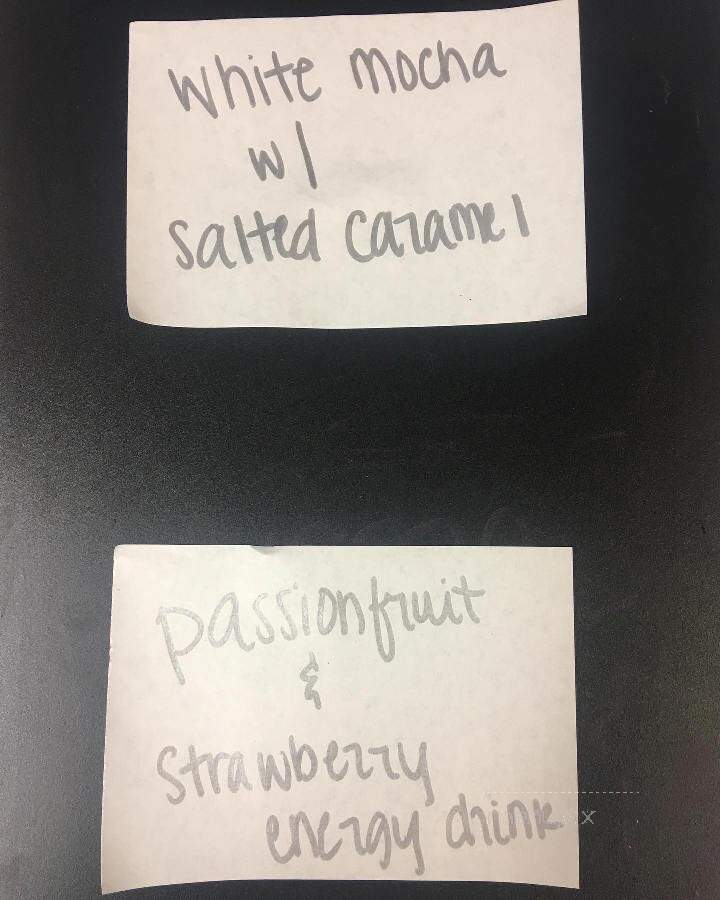 white mocha
w/
salted caramel
passionfruit
&
strawberry
energy drink
x